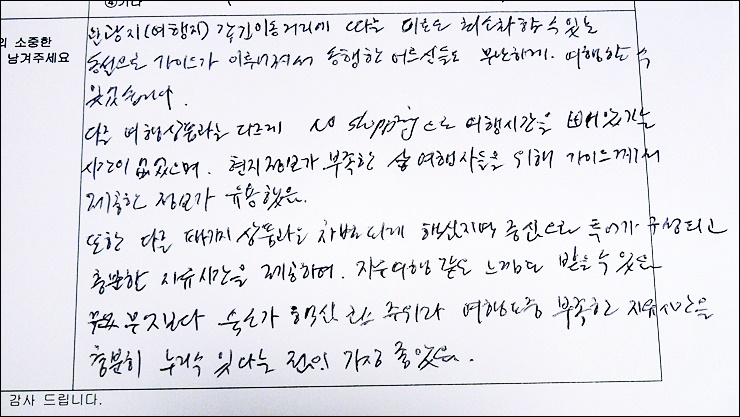 ④기타
의 소중한
남겨주세요
관광지(여행지) 각각 이동거리에 따른 피로도 최소화 할 수 있는
동선으로 가이드가 이루어져서 동행한 어르신들도 무난하게 여행할 수
있었습니다.
다른 여행상품과는 다르게 No shopping으로 여행시간을 빼앗기는
시간이 없었으며, 현지정보가 부족한 여행자들을 위해 가이드께서
제공한 정보가 유용했음.
또한 다른 패키지 상품과는 차별되게 핵심지역 중심으로 투어가 구성되고
충분한 자유시간을 제공하여, 자유여행 같은 느낌도 받을 수 있었음
무엇보다 숙소가 핵심 주위라 여행도중 부족한 자유시간을
충분히 누릴 수 있다는 점이 가장 좋았음.
감사 드립니다.